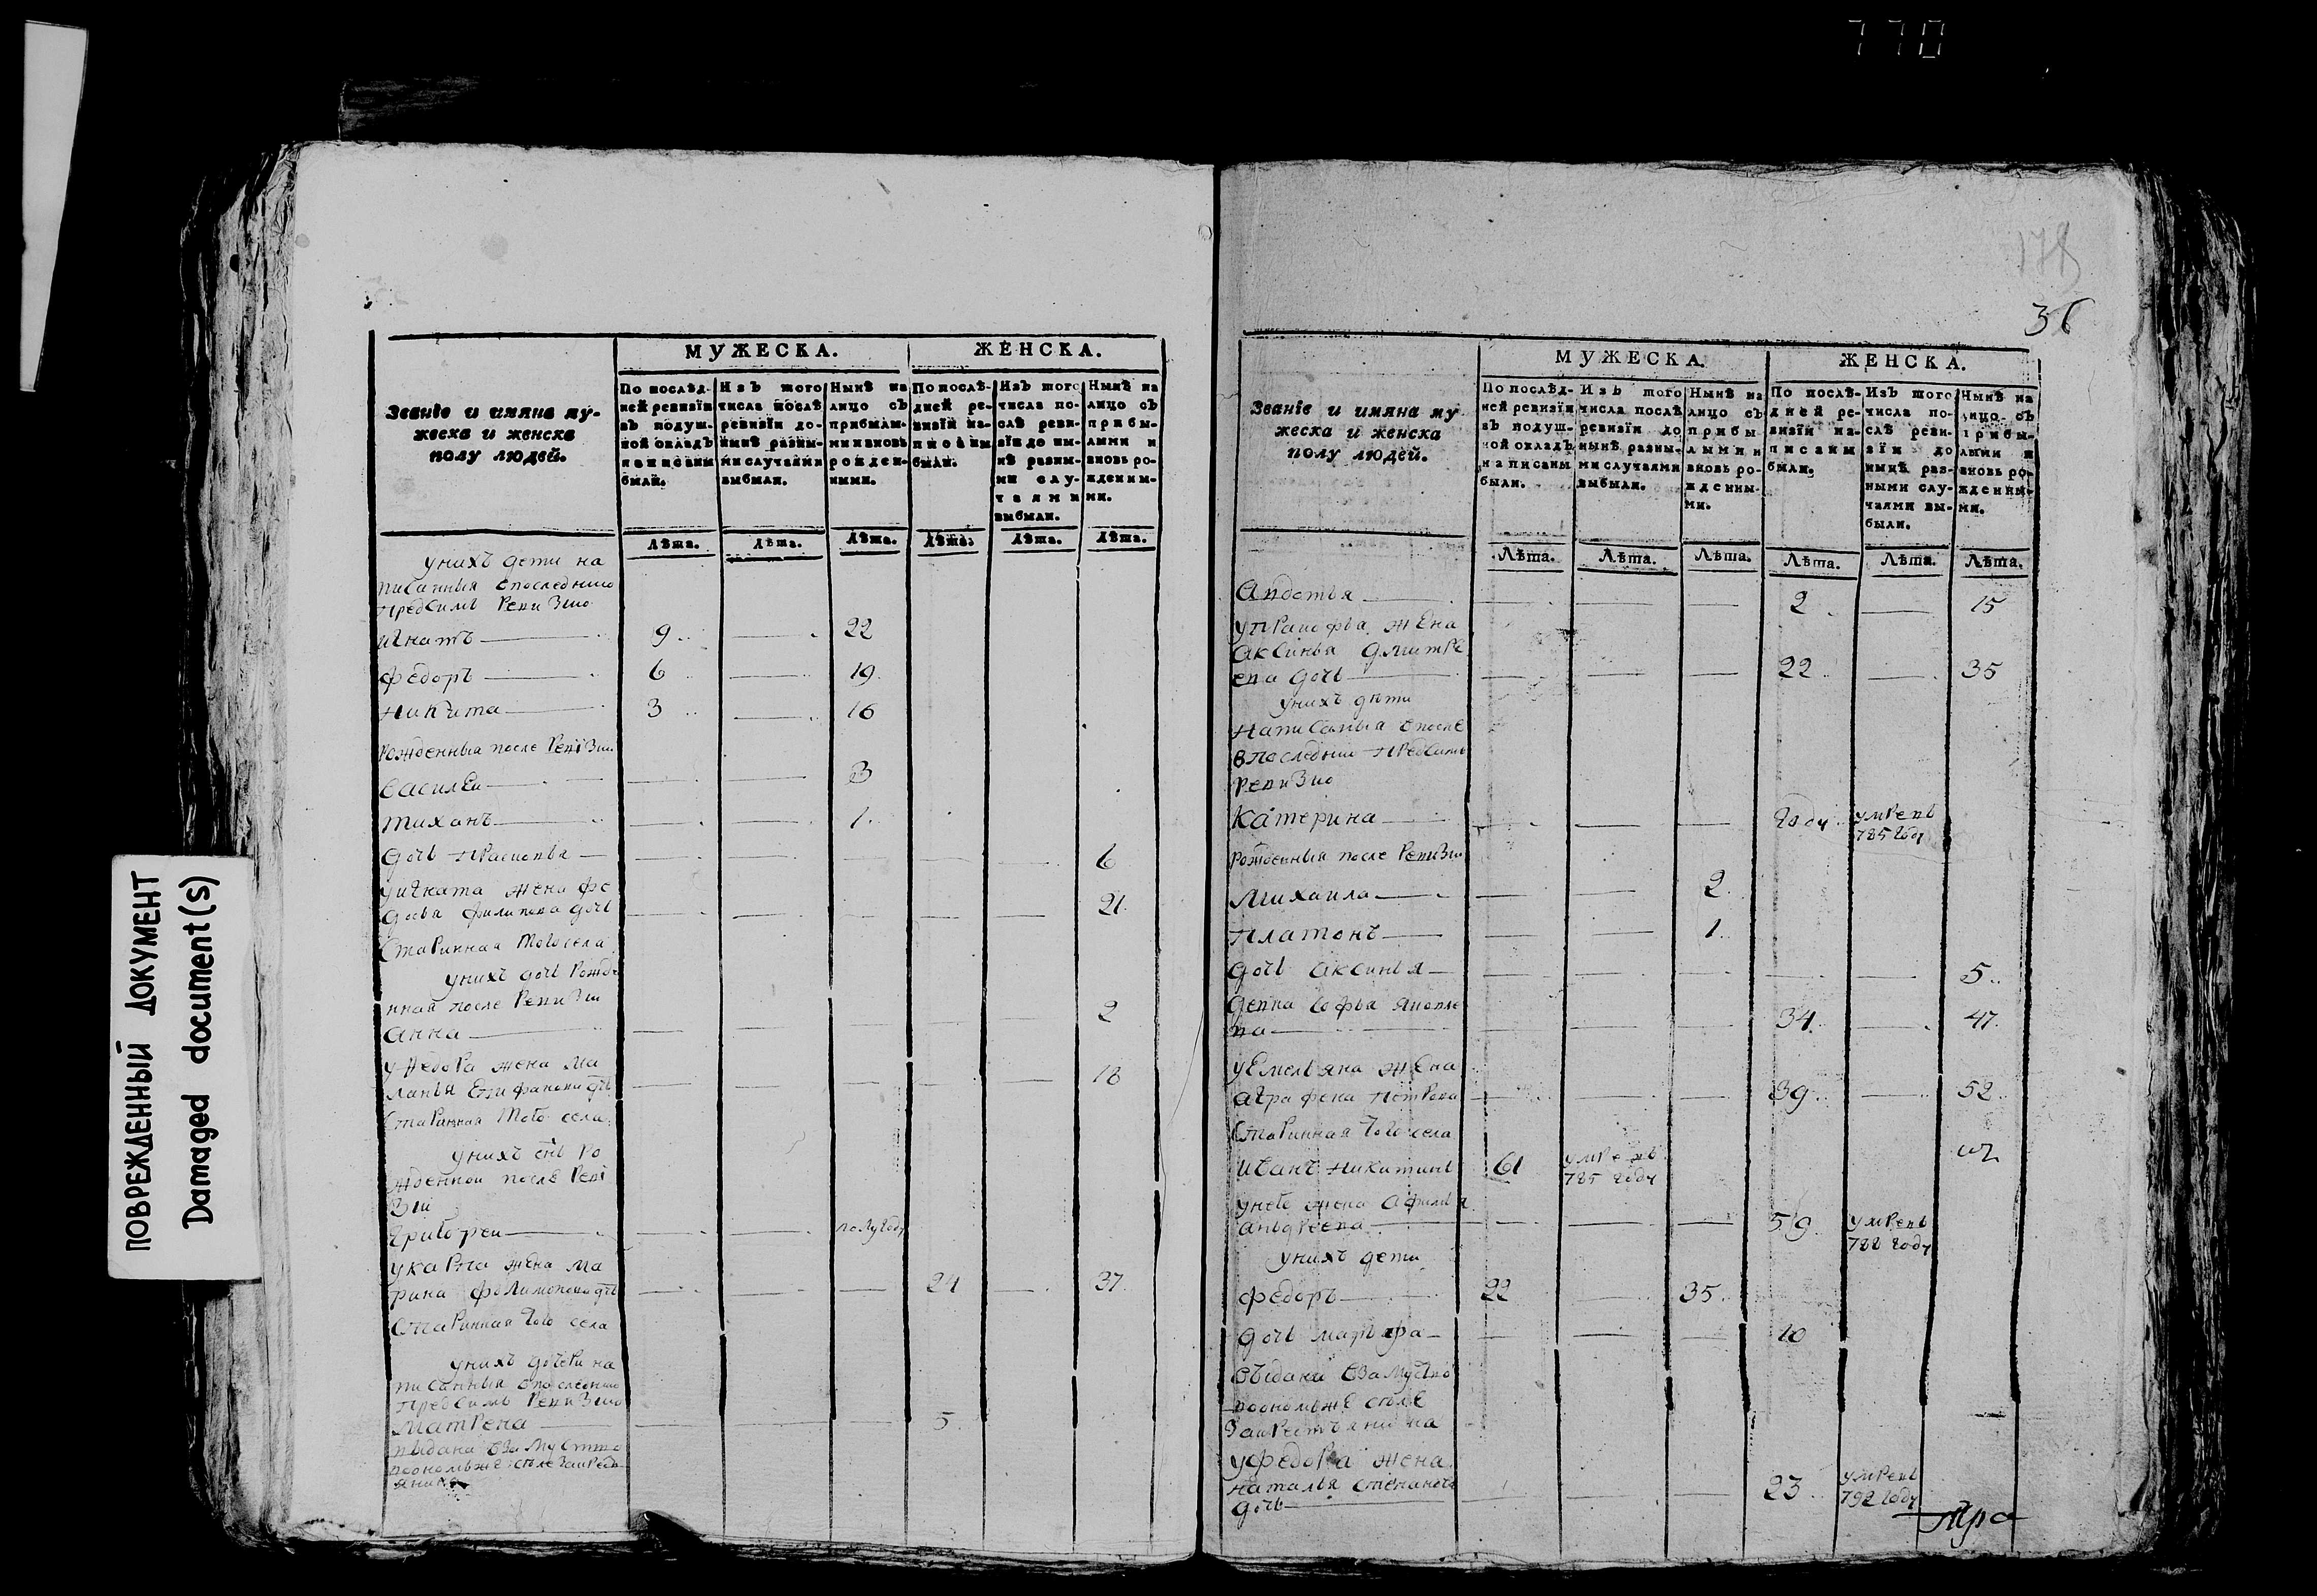 770
ПОВРЕЖДЕННЫЙ ДОКУМЕНТ
Damaged document(s)
МУЖЕСКА. ЖЕНСКА.
Званіе и имяна му-
жеска и женска
полу людей.
По послѣд-
ней ревизіи
въ подуш-
ной окладъ
написаны
были.
Изъ того
числа послѣ
ревизіи до-
нынѣ разны-
ми случаями
выбыли.
Нынѣ на
лицо съ
прибылы-
ми и вновь
рожден-
ными.
По послѣ-
дней ре-
визіи на-
писаны
были.
Изъ того
числа по-
слѣ реви-
зіи до ны-
нѣ разны-
ми слу-
чаями
выбыли.
Нынѣ на
лицо съ
прибы-
лыми и
вновь ро-
жденны-
ми.
Лѣта. Лѣта. Лѣта. Лѣта. Лѣта. Лѣта.
унихъ дети на
писанныя впоследнию
предсимъ Ревизию
игнатъ 9 22
федоръ 6 19
никита 3 16
Рожденныя после Ревизии
василеи 3
тиханъ 1
дочь Прасковья 6
уигната жена фе
досья филипова дочь 21
Старинная того села
унихъ дочь Рожде
нная после Ревизии
анна 2
уфедора жена Ма
ланья Епифанова дчь 18
Старинная того села
унихъ снъ Ро
жденной после Реви
зии
григореи полугоду
укарпа жена Ма
рина филимонова дчь 24 37
Старинная того села
унихъ дочери на
писанныя впоследнию
предсимъ Ревизию
Матрена 5
выдана взамуство
178
36
МУЖЕСКА. ЖЕНСКА.
Званіе и имяна му
жеска и женска
полу людей.
По послѣд-
ней ревизіи
въ подуш-
ной окладъ
написаны
были.
Изъ того
числа послѣ
ревизіи до
нынѣ разны-
ми случаями
выбыли.
Нынѣ на
лицо съ
прибы
лыми и
вновь ро-
жденны-
ми.
По послѣ-
дней ре-
визіи на-
писаны
были.
Изъ того
числа по-
слѣ реви-
зіи до
нынѣ раз-
ными слу-
чаями вы-
были.
Нынѣ на
лицо съ
прибы-
лыми и
вновь ро-
жденны-
ми.
Лѣта. Лѣта. Лѣта. Лѣта. Лѣта. Лѣта.
авдотья 2 15
упракофья жена
аксинья дмитре
ева дочь 22 35
унихъ дети
написаныя впосле
впоследнии предсимъ
ревизию
Катерина году умре 785 году
рожденныя после Ревизии
Михаила 2
платонъ 1
дочь аксинья 5
девка софья яковле
ва 34 47
уемельяна жена
аграфена петрова 39 52
Старинная того села
иванъ никитинъ 61 умре 785 году
унего жена
андреева 59 умре 788 году
унихъ дети
федоръ 22 35
дочь марьфа 10
выдана взамуство
уфедора жена
наталья степанова
дочь 23 умре 792 году